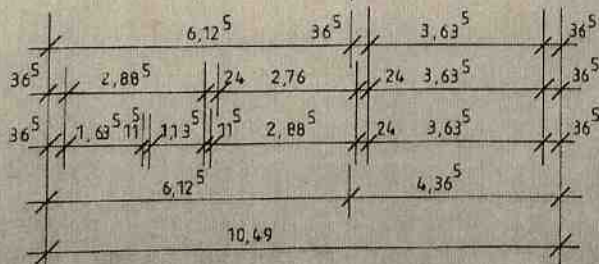 6,12⁵ 36⁵ 3,63⁵ 36⁵
36⁵ 2,88⁵ 24 2,76 24 3,63⁵ 36⁵
36⁵ 1,63⁵ 11⁵ 1,13⁵ 11⁵ 2,88⁵ 24 3,63⁵ 36⁵
6,12⁵ 4,36⁵
10,49